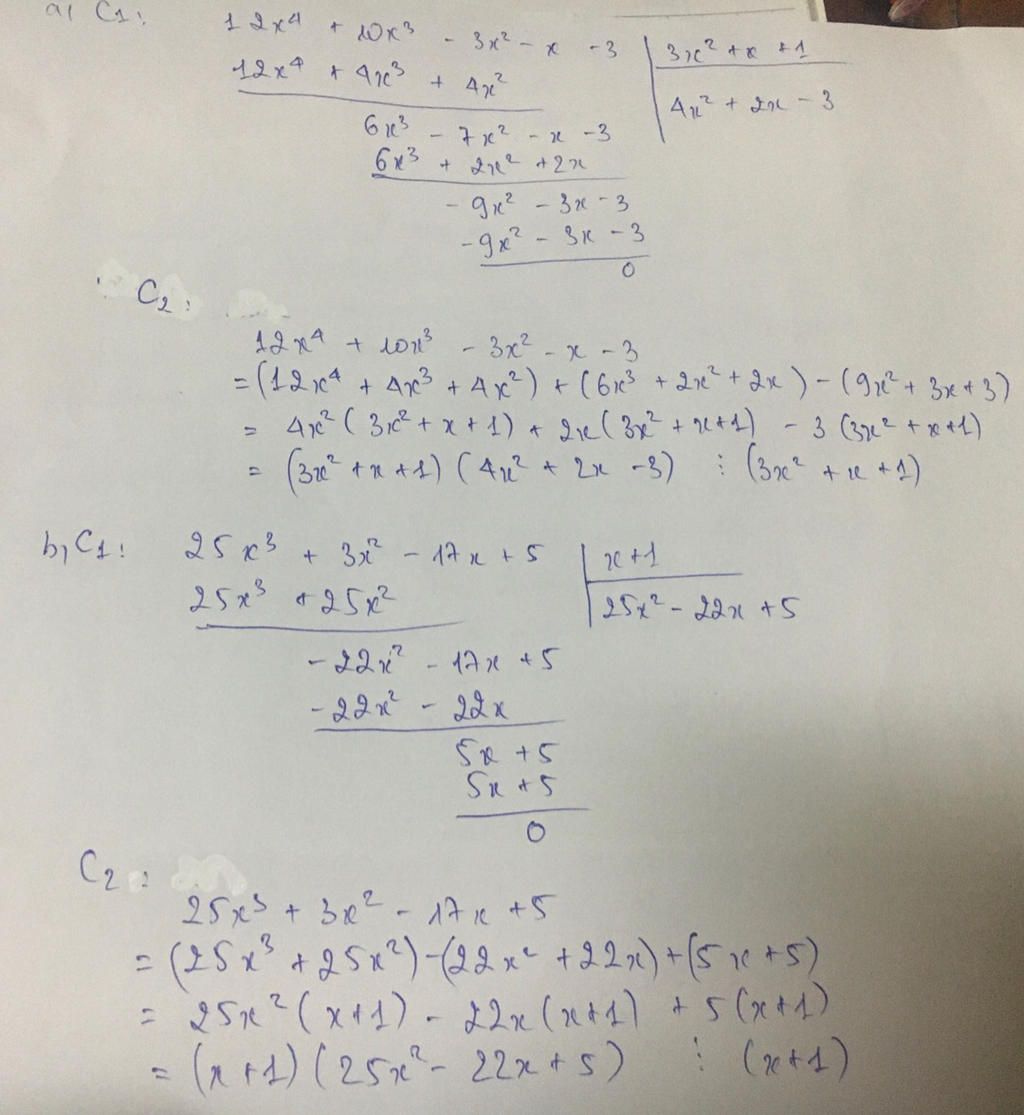 a, C1: 12x⁴ + 10x³ - 3x² - x - 3 | 3x² + x + 1
12x⁴ + 4x³ + 4x² | 4x² + 2x - 3
6x³ - 7x² - x - 3
6x³ + 2x² + 2x
- 9x² - 3x - 3
- 9x² - 3x - 3
0
C2:
12x⁴ + 10x³ - 3x² - x - 3
= (12x⁴ + 4x³ + 4x²) + (6x³ + 2x² + 2x) - (9x² + 3x + 3)
= 4x² (3x² + x + 1) + 2x (3x² + x + 1) - 3 (3x² + x + 1)
= (3x² + x + 1) (4x² + 2x - 3) ⋮ (3x² + x + 1)
b, C1: 25x³ + 3x² - 17x + 5 | x + 1
25x³ + 25x² | 25x² - 22x + 5
- 22x² - 17x + 5
- 22x² - 22x
5x + 5
5x + 5
0
C2:
25x³ + 3x² - 17x + 5
= (25x³ + 25x²) - (22x² + 22x) + (5x + 5)
= 25x² (x + 1) - 22x (x + 1) + 5 (x + 1)
= (x + 1) (25x² - 22x + 5) ⋮ (x + 1)